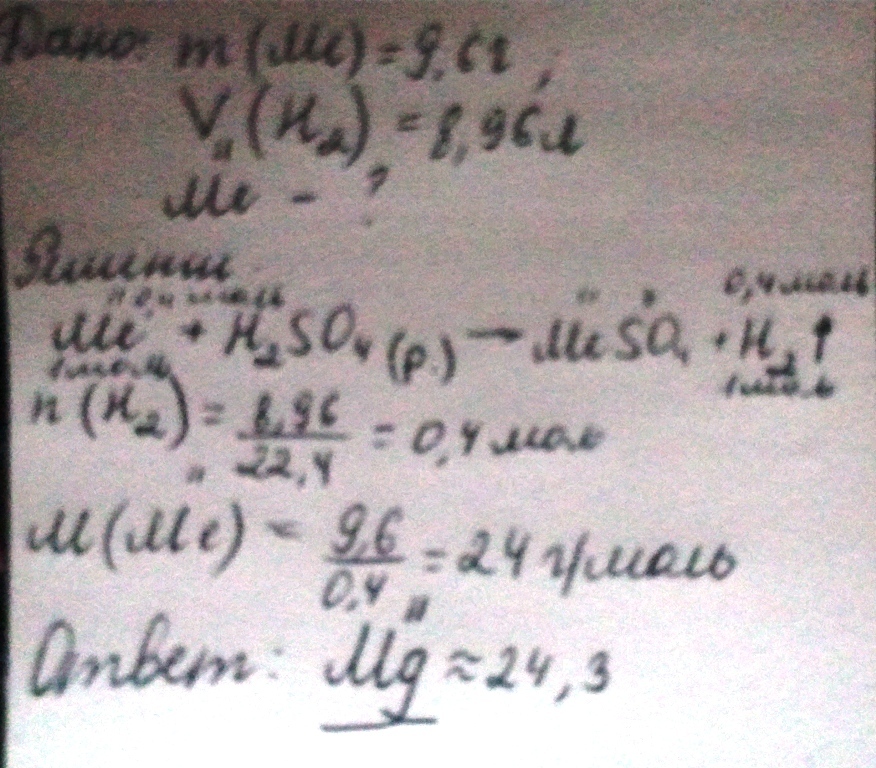 Дано: m(Me) = 9,6г;
V(H₂) = 8,96л
Me - ?
Решение
0,4 моль 0,4 моль
Me + H₂SO₄(р.) → MeSO₄ + H₂↑
1моль 1моль
n(H₂) = 8,96/22,4 = 0,4 моль
M(Me) = 9,6/0,4 = 24 г/моль
Ответ: Mg ≈ 24,3